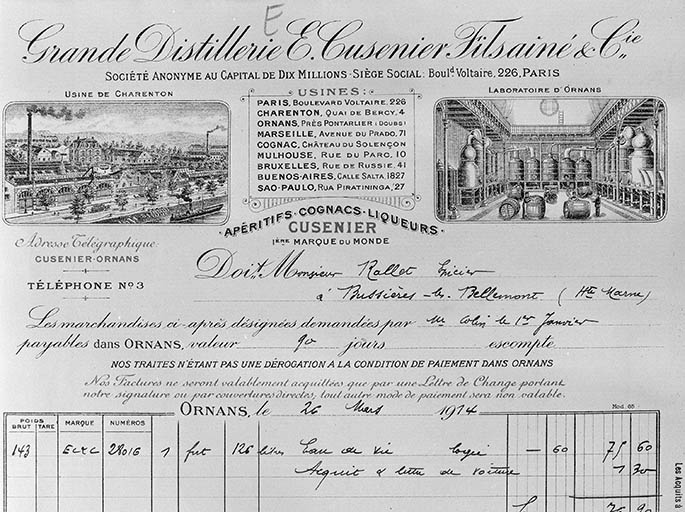 E
Grande Distillerie E. Cusenier Fils ainé & Cie
Société Anonyme au Capital de Dix Millions - Siège Social: Bould Voltaire, 226, Paris
Usine de Charenton
Usines:
Paris, Boulevard Voltaire, 226
Charenton, Quai de Bercy, 4
Ornans, Près Pontarlier (Doubs)
Marseille, Avenue du Prado, 71
Cognac, Château du Solençon
Mulhouse, Rue du Parc, 10
Bruxelles, Rue de Russie, 41
Buenos-Aires, Calle Salta, 1827
Sao-Paulo, Rua Piratininga, 27
Laboratoire d'Ornans
Apéritifs · Cognacs · Liqueurs
Cusenier
1ère Marque du Monde
Adresse Télégraphique
Cusenier-Ornans
Téléphone No 3
Doit Monsieur Rollet Epicier
à Bussières-les-Bellemont (Hte Marne)
Les marchandises ci-après désignées demandées par Mr Colin le 1er Janvier
payables dans Ornans, valeur 90 jours escompte
Nos traites n'étant pas une dérogation à la condition de paiement dans Ornans
Nos Factures ne seront valablement acquittées que par une Lettre de Change portant
notre signature ou par couvertures directes; tout autre mode de paiement sera non valable.
Ornans, le 26 Mars 1914
Mod. 65
Poids Brut Tare Marque Numéros
143 EC&C 28016 1 fut 126 litres Eau de vie — 60 75 60
Acquit & lettre de voiture 1 30
76 90
Les Acquits à